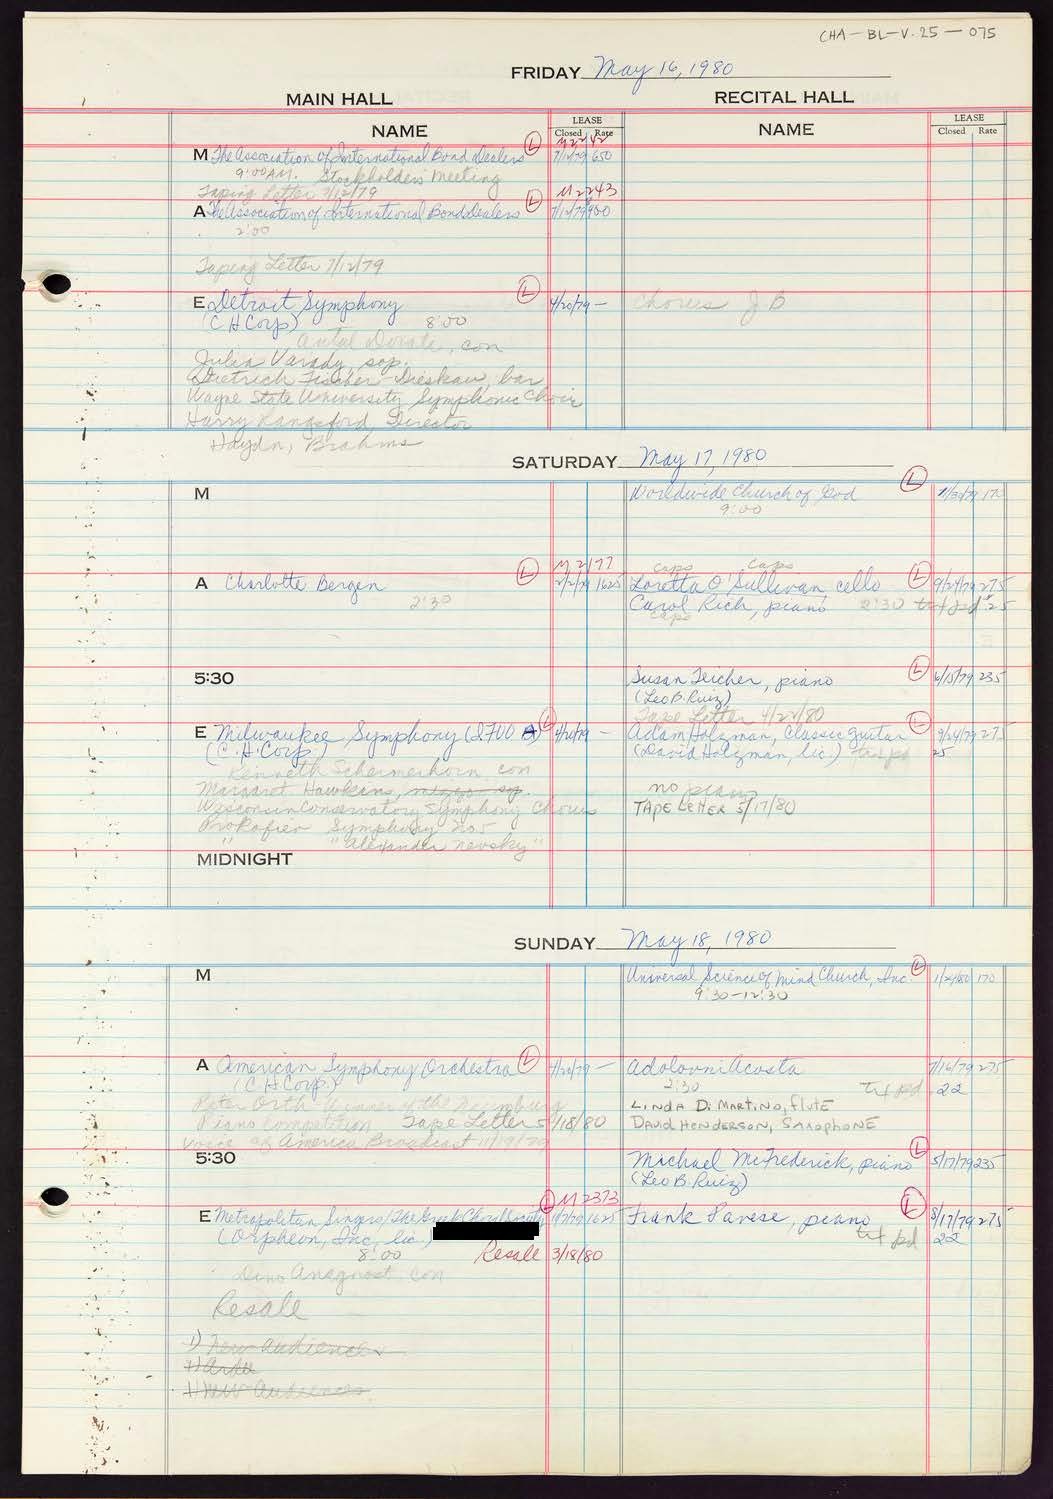 CHA-BL-V.25-075
FRIDAY May 16, 1980
MAIN HALL
RECITAL HALL
NAME
LEASE
Closed Rate
NAME
LEASE
Closed Rate
M2242
M The Association of International Bond Dealers L 7/12/79 650
9:00 AM. Stockholders Meeting
Taping Letter 7/12/79
M2243
A The Association of International Bond Dealers L 7/12/79 900
2:00
Taping Letter 7/12/79
E Detroit Symphony L 4/20/79 - Chorus J B
(C H Corp) 8:00
Antal Dorati, con
Julia Varady, sop.
Dietrich Fischer-Dieskau, bar
Wayne State University Symphonic Choir
Harry Langsford, Director
Haydn, Brahms
SATURDAY May 17, 1980
M Worldwide Church of God L 170
9:00
M2177
caps caps
A Charlotte Bergen L 2/2/79 1625 Loretta O'Sullivan, cello L 9/24/79 275
2:30 Carol Rich, piano 2:30 txt pd 25
caps
5:30 Susan Teicher, piano L 6/15/79 235
(Leo B. Ruiz)
Tape Letter 4/22/80
E Milwaukee Symphony (2700 A) L 4/20/79 - Adam Holzman, Classic guitar L 9/24/79 275
(C. H. Corp) (David Holzman, lic.) txt pd 25
Kenneth Schermerhorn con
Margaret Hawkins, mezzo-sop. no piano
Wisconsin Conservatory Symphony Chorus TAPE LETTER 5/17/80
Prokofiev Symphony no 5
" "Alexander Nevsky"
MIDNIGHT
SUNDAY May 18, 1980
M Universal Science of Mind Church, Inc. L 1/24/80 170
9:30-12:30
A American Symphony Orchestra L 4/20/79 - Adolovni Acosta 7/16/79 275
(C H Corp.) 2:30 txt pd 22
Peter Orth - Winner of the Naumburg LINDA DiMARTINO, flute
Piano Competition Tape Letter 5/18/80 DAVID HENDERSON, SAXOPHONE
Voice of America Broadcast 11/19/79
5:30 Michael McFrederick, piano L 5/17/79 235
(Leo B. Ruiz)
L M2373
E Metropolitan Singers/The Greek Choral Society 1625 Frank Pavese, piano L 8/17/79 275
(Orpheon, Inc, lic.) txt pd 22
8:00 Resale 3/18/80
Dino Anagnost con
Resale
1) New Audiences
1) Ardee
1) New Audiences